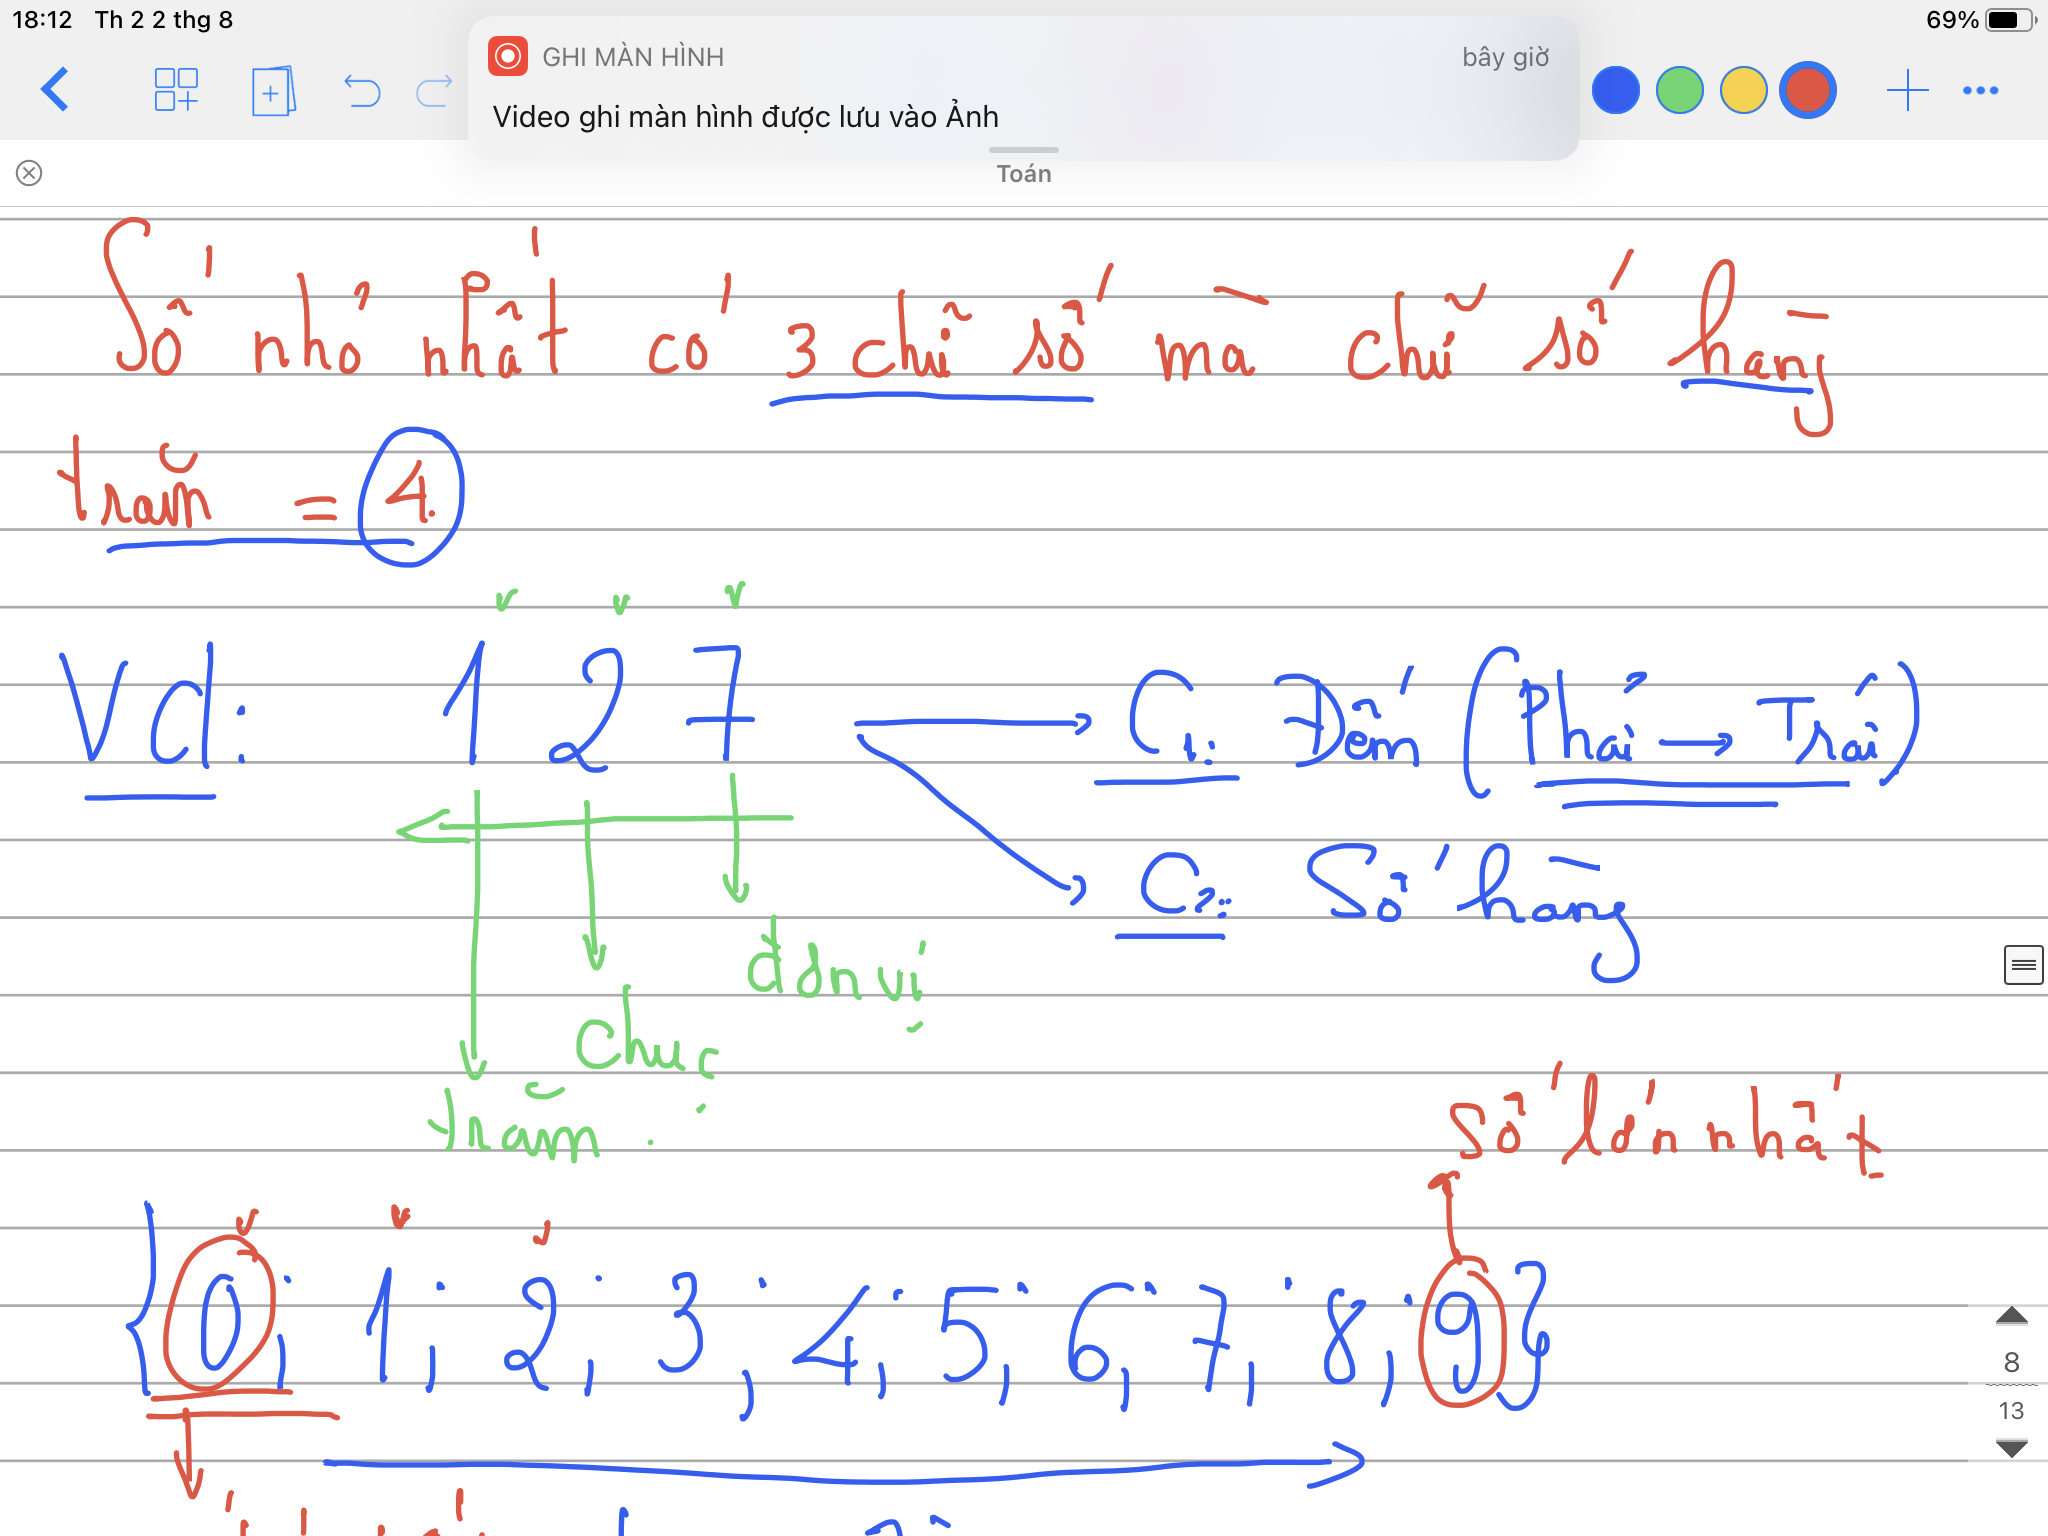 18:12 Th 2 2 thg 8
69%
GHI MÀN HÌNH
bây giờ
Video ghi màn hình được lưu vào Ảnh
Toán
Số nhỏ nhất có 3 chữ số mà chữ số hàng
trăm = 4.
Vd: 127 → C1: Đếm (Phải → Trái)
C2: Số hàng
đơn vị
chục
trăm.
Số lớn nhất
{0; 1; 2; 3; 4; 5; 6; 7; 8; 9}
8
13